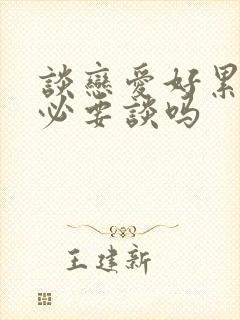 談戀愛好累
必要談吗
王建新